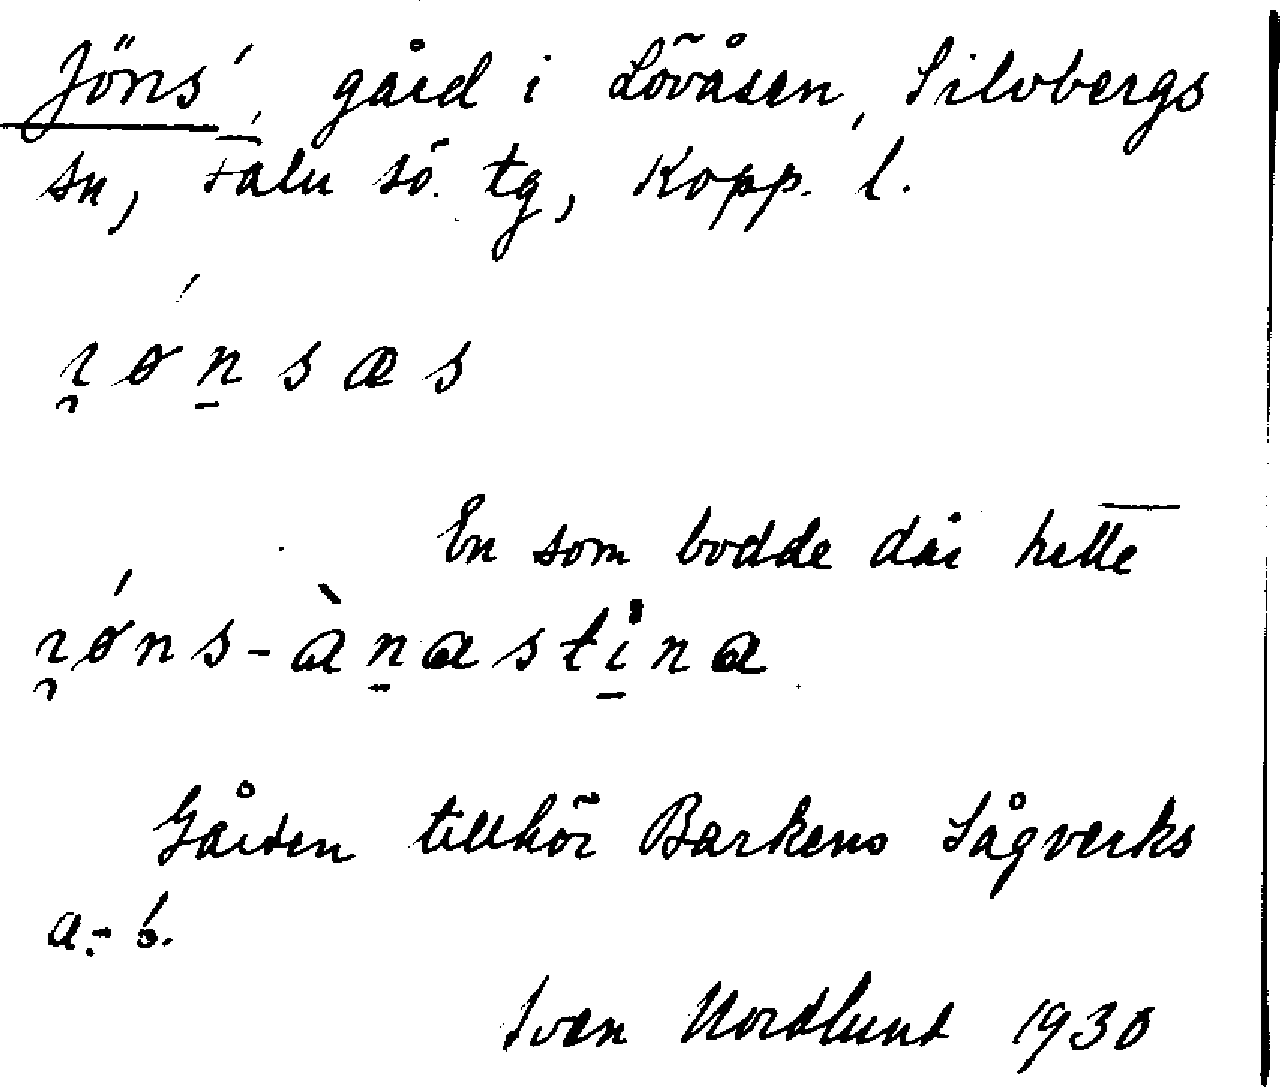 Jöns', gård i Lövåsen, Silvbergs
sn, Falu sö. tg, Kopp. l.
ɿǿn̠sæs
En som bodde där hette
ɿǿns-àn̠asti̠na
Gården tillhör Barkens Sågverks
a.-b.
Sven Nordlund 1930